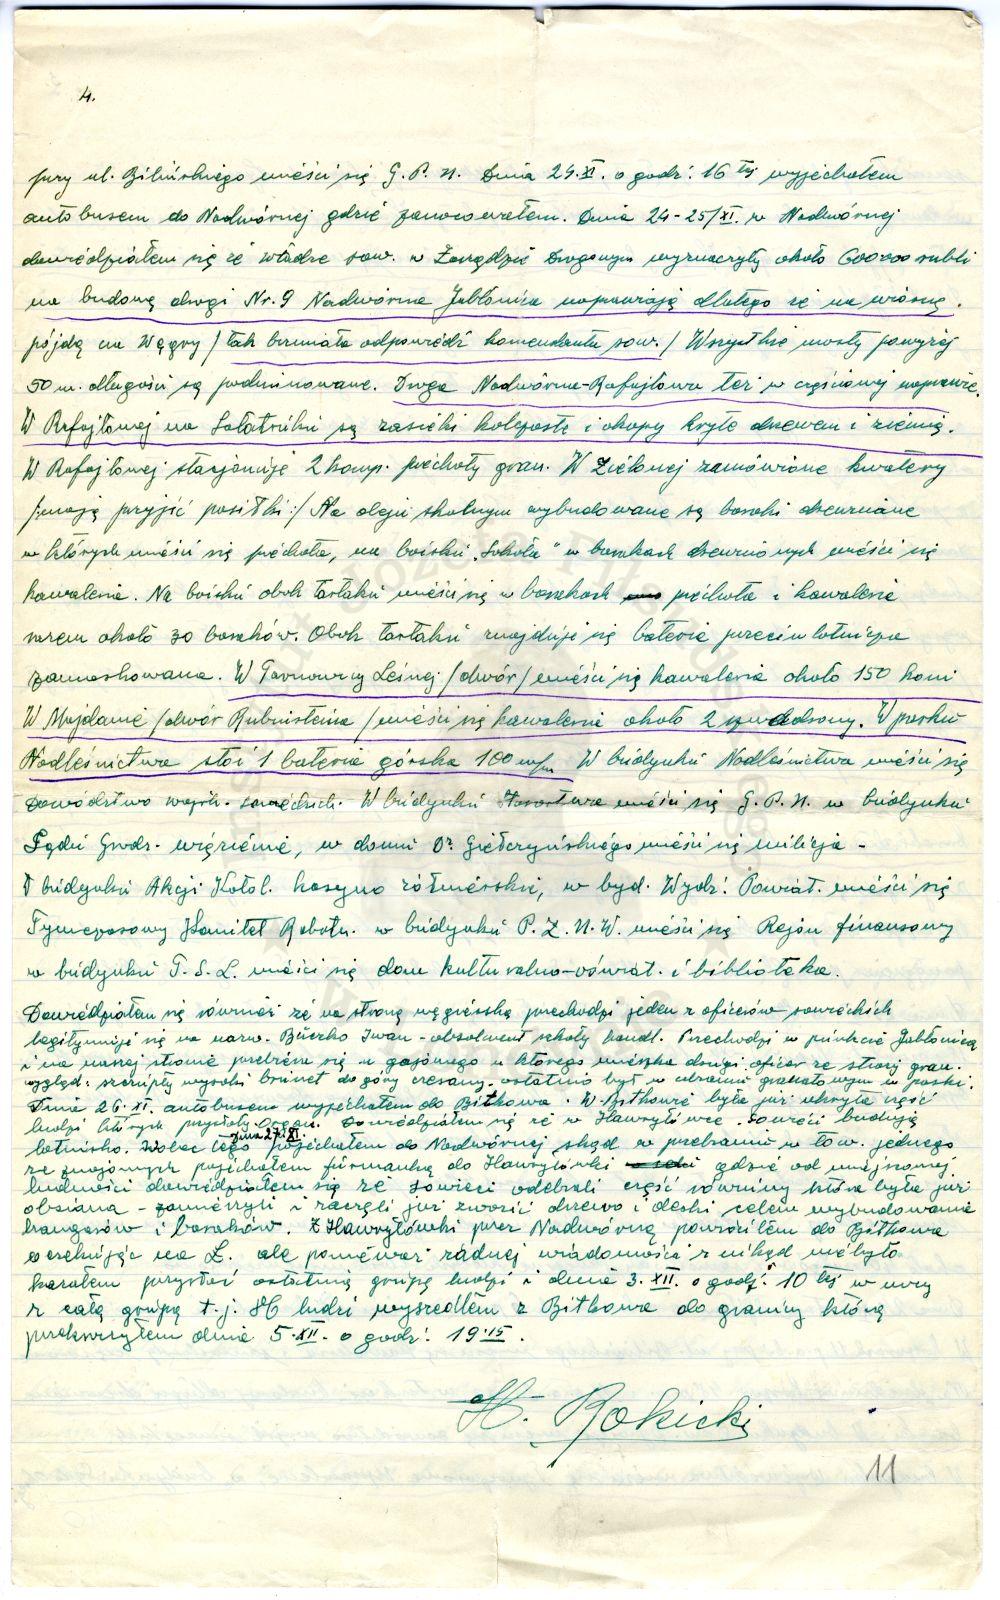 4.
przy ul. Bilińskiego mieści się G. P. U. Dnia 24.XI. o godz. 16 tej wyjechałem
autobusem do Nadwórnej gdzie zanocowałem. Dnia 24-25/XI. w Nadwórnej
dowiedziałem się że władze sow. w Zarządzie Drogowym wyznaczyły około 600000 rubli
na budowę drogi Nr. 9 Nadwórna Jabłonica naprawiają dlatego że na wiosnę
pójdą na Węgry /tak brzmiała odpowiedź komendanta sow./ Wszystkie mosty powyżej
50 m. długości są podminowane. Droga Nadwórna-Rafajłowa też w częściowej naprawie.
W Rafajłowej na Sałatruku są zasieki kolczaste i okopy kryte drzewem i ziemią.
W Rafajłowej stacjonuje 2 komp. piechoty gran. W Zielonej zamówione kwatery
/:mają przyjść posiłki:/ Na placu szkolnym wybudowane są baraki drewniane
w których mieści się piechota, na boisku „Sokoła" w barakach drewnianych mieści się
kawaleria. Na boisku obok tartaku mieści się w barakach piechota i kawaleria
razem około 30 baraków. Obok tartaku znajduje się bateria przeciwlotnicza
zamaskowana. W Tarnowicy Leśnej /dwór/ mieści się kawaleria około 150 koni
W Majdanie /dwór Rubinsteina/ mieści się kawaleria około 2 szwadrony. W parku
Nadleśnictwa stoi 1 bateria górska 100 m/m W budynku Nadleśnictwa mieści się
Dowództwo wojsk. sowieckich. W budynku Starostwa mieści się G. P. U. w budynku
Sądu Grodz. więzienie, w domu Dr. Giełczyńskiego mieści się milicja -
W budynku Akcji Katol. kasyno żołnierskie, w byd. Wydz. Powiat. mieści się
Tymczasowy Komitet Robotn. w budynku P. Z. U. W. mieści się Rejon finansowy
w budynku T. S. L. mieści się dom kulturalno-oświat. i biblioteka.
Dowiedziałem się również że na stronę węgierską przechodzi jeden z oficerów sowieckich
legitymuje się na nazw. Buszko Iwan - absolwent szkoły handl. Przechodzi w punkcie Jabłonica
i na naszej stronie przebiera się u gajowego u którego mieszka drugi oficer ze straży gran.
wygląd: szczupły wysoki brunet do góry czesany. ostatnio był w ubraniu granatowym w paski.
Dnia 26.XI. autobusem wyjechałem do Bitkowa. W Bitkowie była już ukryta część
ludzi których przysłały Organ. Dowiedziałem się że w Hawryłówce sowieci budują
lotnisko. Wobec tego dnia 27.XI. pojechałem do Nadwórnej skąd w przebraniu w tow. jednego
ze znajomych pojechałem furmanką do Hawryłówki gdzie od miejscowej
ludności dowiedziałem się że sowieci odebrali część równiny która była już
obsiana - zamierzyli i zaczęli już zwozić drzewo i deski celem wybudowania
hangarów i baraków. Z Hawryłówki przez Nadwórną powróciłem do Bitkowa
oczekując na Z. ale ponieważ żadnej wiadomości z nikąd nie było
kazałem przysłać ostatnią grupę ludzi i dnia 3.XII. o godz. 10 tej w nocy
z całą grupą t. j. ludzi wyszedłem z Bitkowa do granicy którą
przekroczyłem dnia 5.XII. o godz. 19.15.
H. Rokicki
11